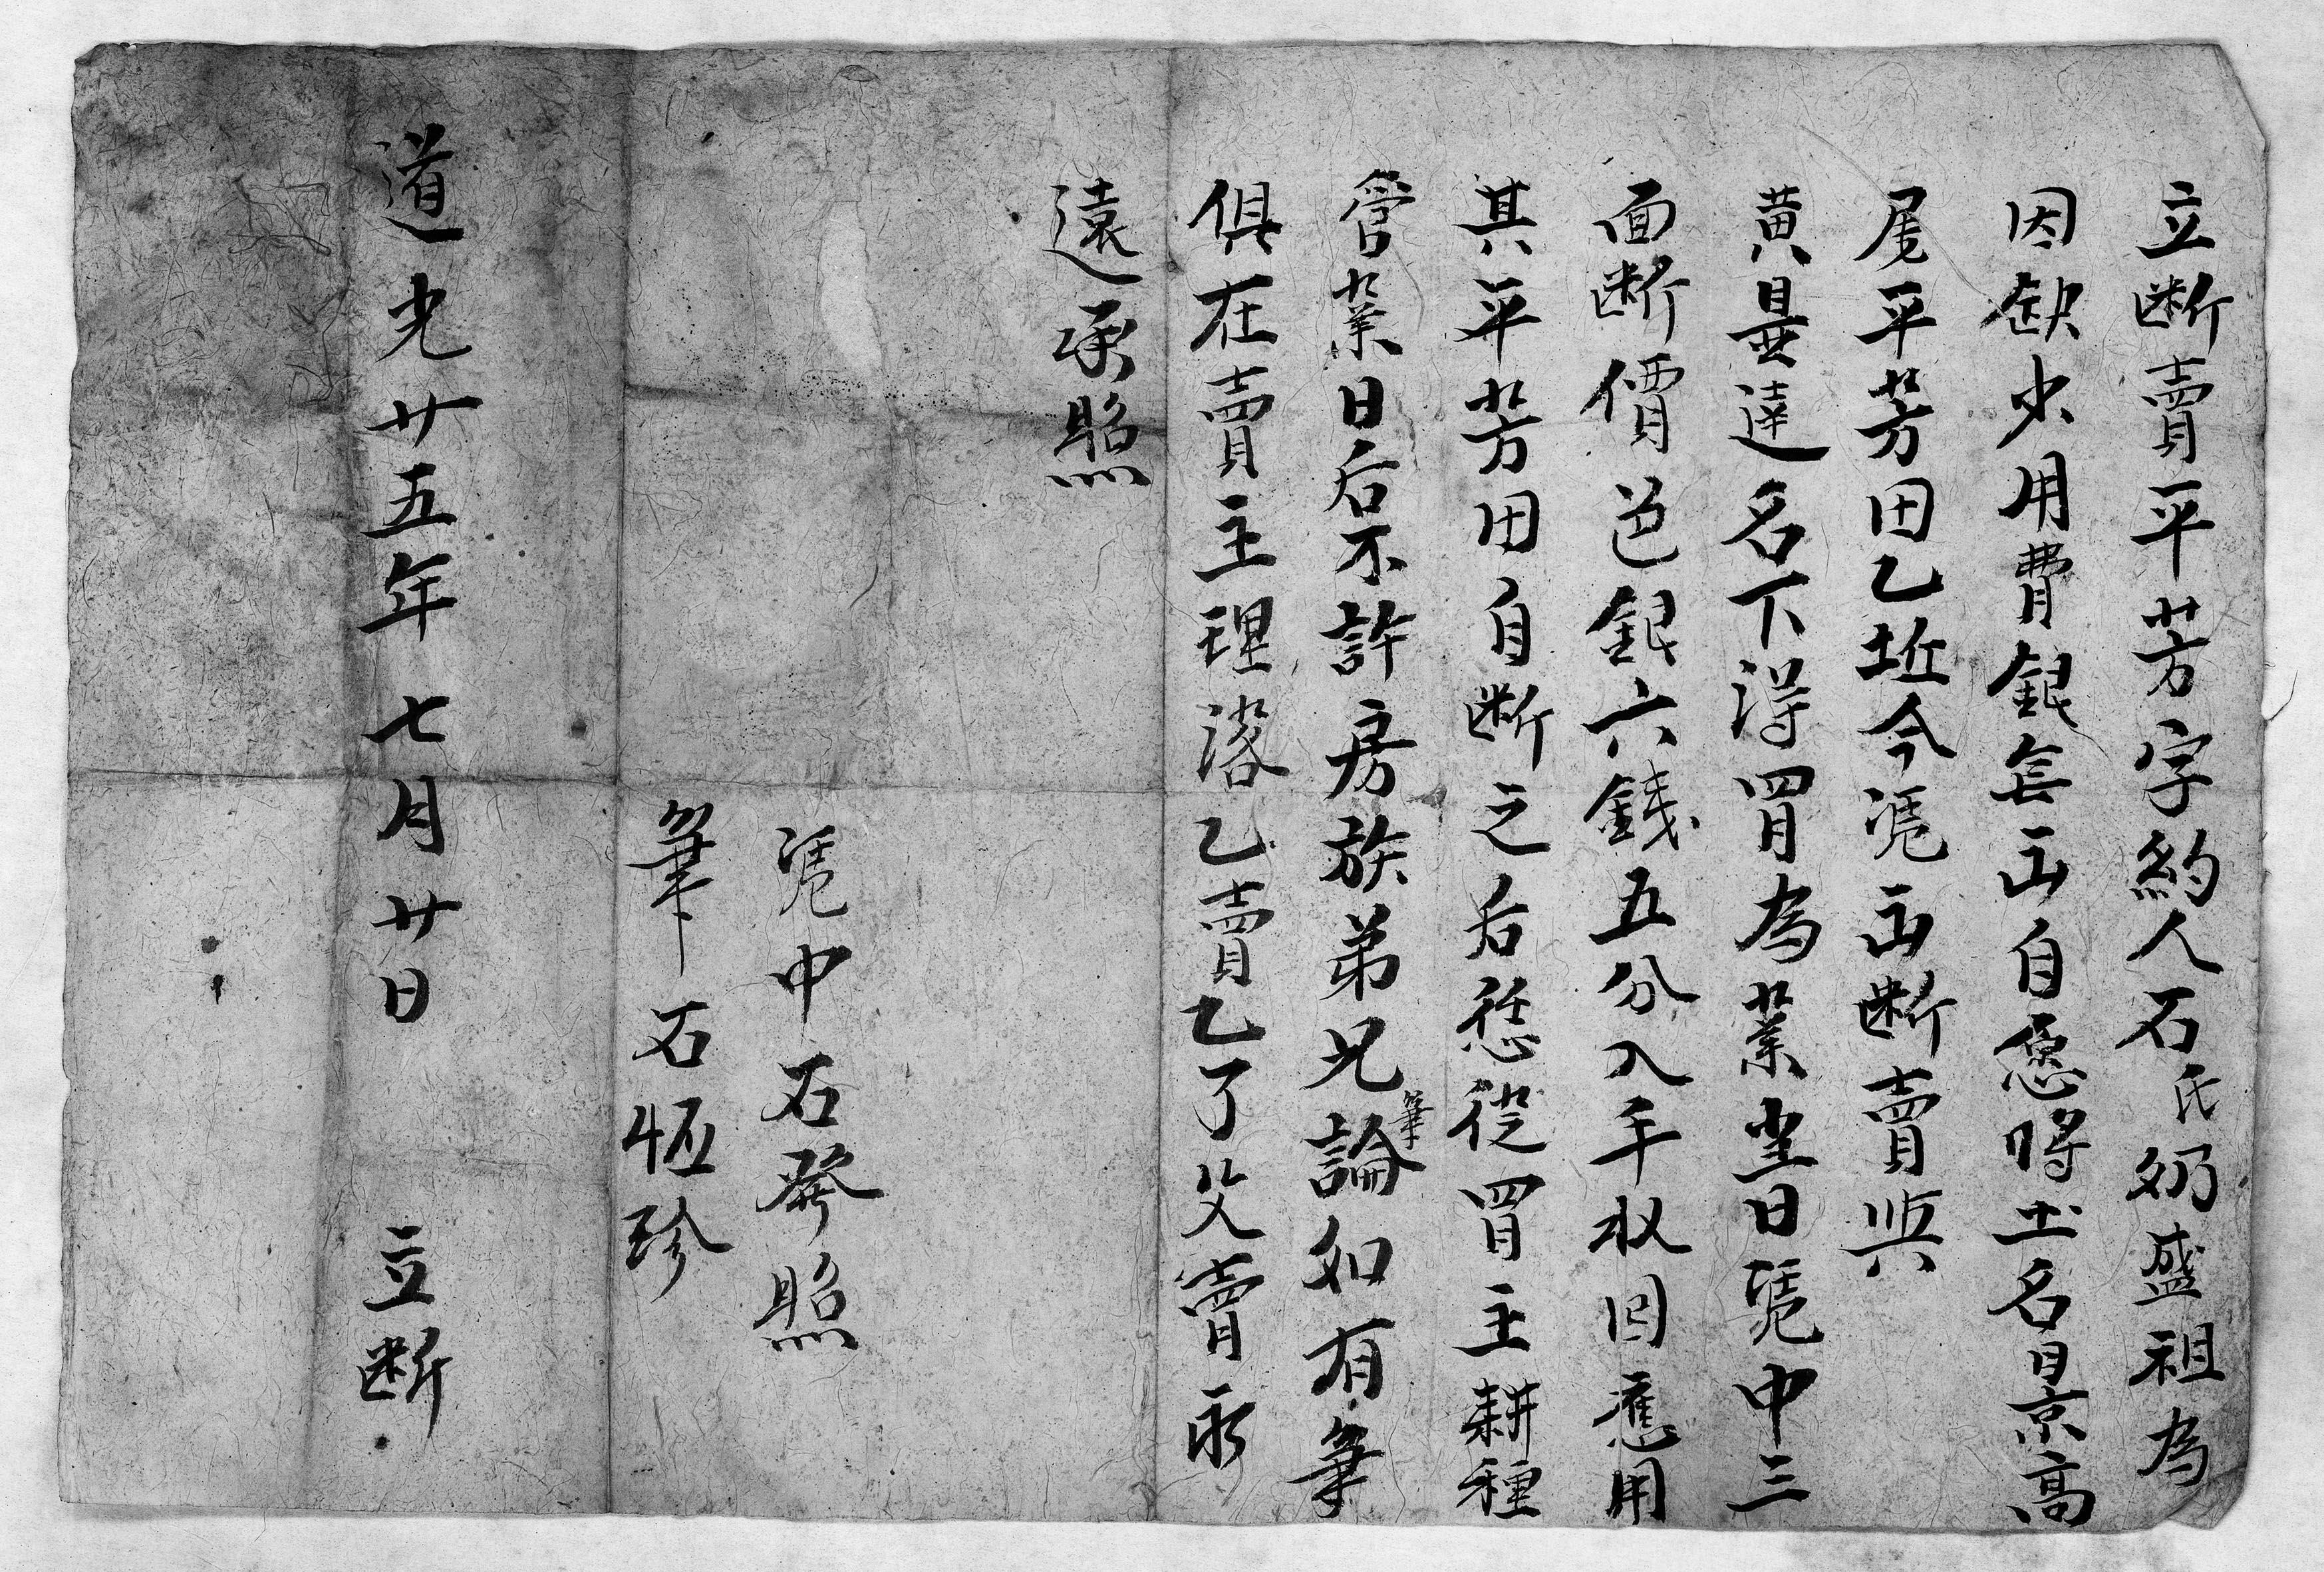 立断賣平芳字約人石氏奶盛祖為
因缺少用費銀無出自愿將土名景高
尾平芳田乙坵今凴出断賣與
黄昙達名下淂買為業当日凴中三
面断價艺銀六錢五分入手收囬應用
其平芳田自断之后恁從買主耕種
管業日后不許房族弟兄論如有筆
俱在賣主理落乙賣乙了父賣永
遠承照
凴中石發照
筆石恒珍
道光廿五年七月廿日 立断